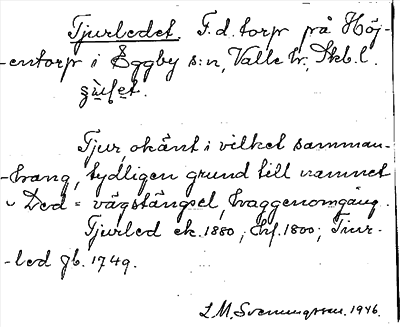 Tjurledet. F.d. torp på Höj-
-entorp i Eggby s:n, Valle hr, Skb.l.
Tjur, okänt i vilket samman-
-hang, tydligen grund till namnet
Led = vägstängsel, haggenomgång.
Tjurled ek. 1880; hf. 1800; Tiur-
-led Jb. 1749.
L.M. Svenungsson. 1946.